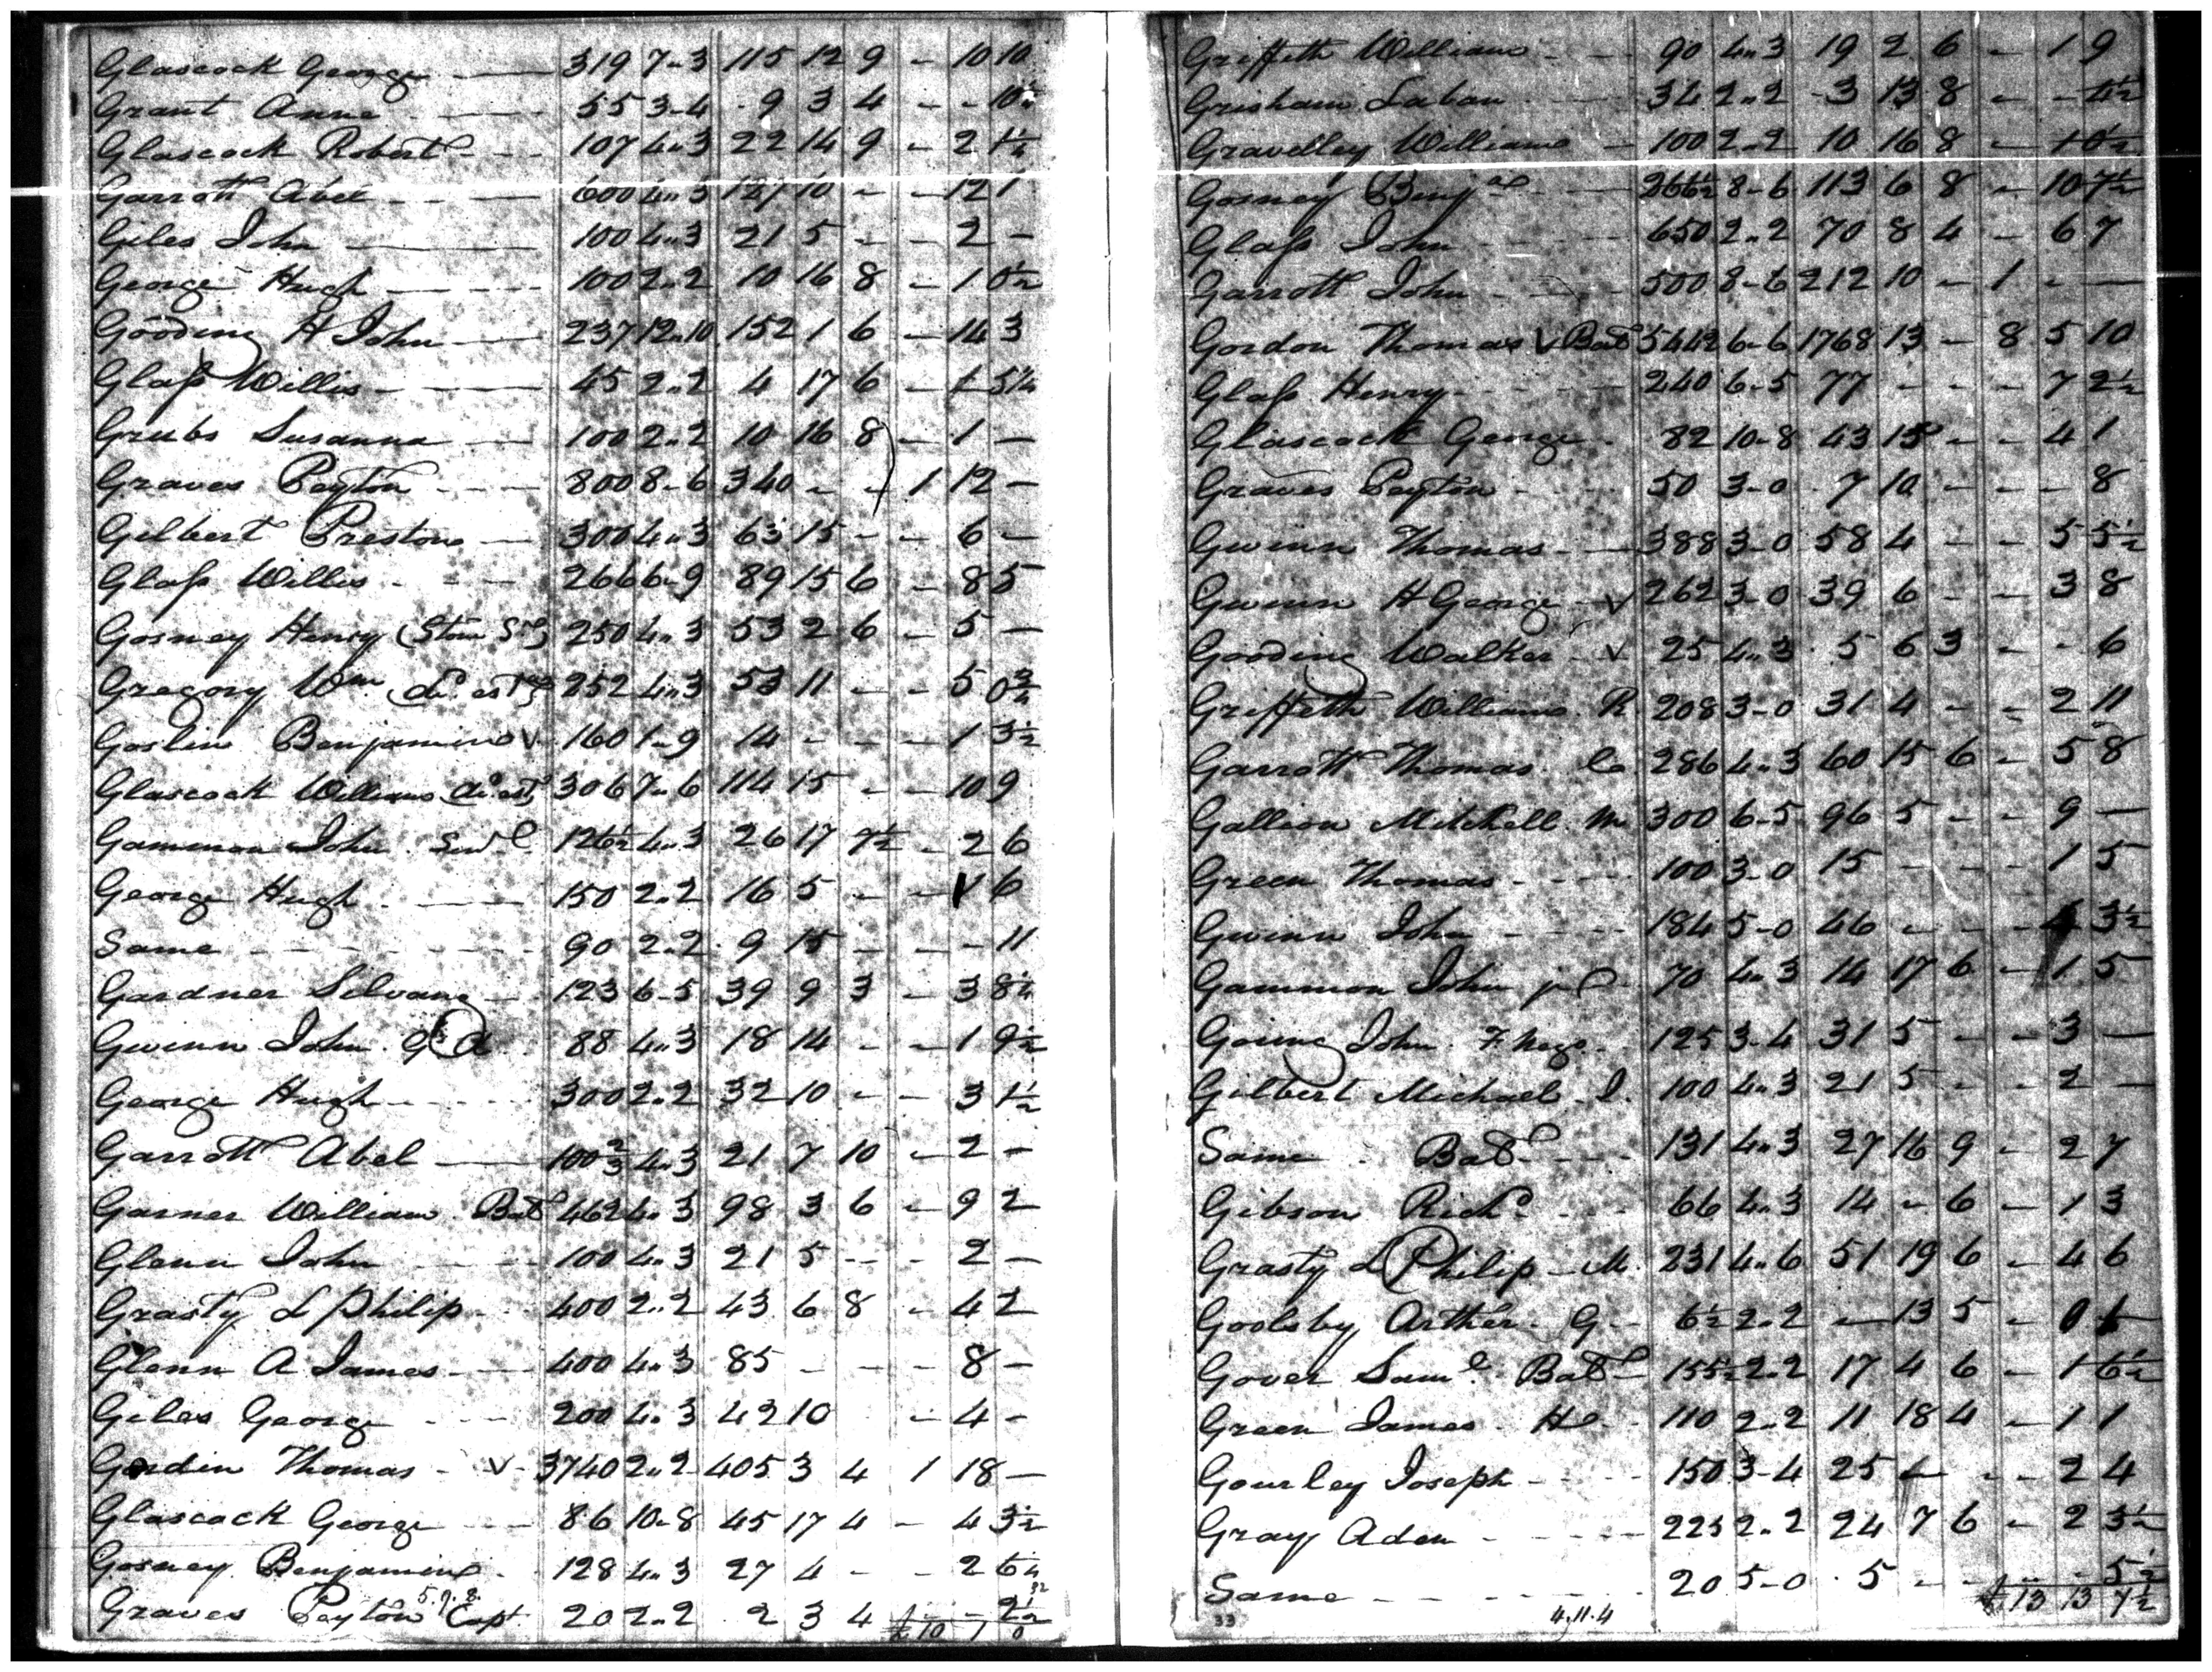 Glascock George 319 7-3 115 12 9 - 10 10
Grant Anne 55 3-4 9 3 4 - - 10½
Glascock Robert 107 4-3 22 14 9 - 2 1½
Garrott Abel 600 4-3 127 10 - - 12 1
Giles John 100 4-3 21 5 - - 2 -
George Hugh 100 2-2 10 16 8 - 1 0½
Gooding H John 237 12-10 152 1 6 - 14 3
Glass Willis 45 2-2 4 17 6 -
Grubs Susanna 100 2-2 10 16 8 - 1 -
Graves Peyton 800 8-6 340 - - 1 12 -
Gilbert Preston 300 4-3 63 15 - - 6 -
Glass Willis 266 6-9 89 15 6 - 8 5
Gosney Henry 250 4-3 53 2 6 - 5 -
Gregory Wm 252 4-3 53 11 - - 5 0¾
Goslin Benjamin V 160 1-9 14 - - - 1 3½
Glascock William 306 7-6 114 15 - - 10 9
Gammon John Senr 126½ 4-3 26 17 7½ - 2 6
George Hugh 150 2-2 16 5 - - 1 6
Same 90 2-2 9 15 - - - 11
Gardner Silvany 123 6-5 39 9 3 - 3 8¼
Gwinn John 88 4-3 18 14 - - 1 9½
George Hugh 300 2-2 32 10 - - 3 1½
Garrott Abel 100⅔ 4-3 21 7 10 - 2 -
Garner William Bat 462 4-3 98 3 6 - 9 2
Glenn John 100 4-3 21 5 - - 2 -
Grasty L Philip 400 2-2 43 6 8 - 4 2
Glenn A James 400 4-3 85 - - - 8 -
Giles George 200 4-3 42 10 - 4 -
Gordin Thomas V 3740 2-2 405 3 4 1 18 -
Glascock George 86 10-8 45 17 4 - 4 3½
Gosney Benjamin 128 4-3 27 4 - - 2
Graves Peyton Capt 20 2-2 2 3 4 - - 2½
5.9.8
£ 10 1 0
Griffeth William 90 4-3 19 2 6 - 1 9
Grisham Laban 34 2-2 3 13 8 - - 4½
Gravelley William 100 2-2 10 16 8 - 1 0½
Gosney Benja 266½ 8-6 113 6 8 - 10 7½
Glass John 650 2-2 70 8 4 - 6 7
Garrott John 500 8-6 212 10 - 1 - -
Gordon Thomas V Bat 5442 6-6 1768 13 - 8 5 10
Glass Henry 240 6-5 77 - - - 7 2½
Glascock George 82 10-8 43 15 - - 4 1
Graves Peyton 50 3-0 7 10 - - - 8
Gwinn Thomas 388 3-0 58 4 - - 5 5½
Gwinn H George V 262 3-0 39 6 - - 3 8
Gooding Walker V 25 4-3 5 6 3 - - 6
Griffeth William R 208 3-0 31 4 - - 2 11
Garrott Thomas Co 286 4-3 60 15 6 - 5 8
Gallion Mitchell M 300 6-5 96 5 - - 9 -
Green Thomas 100 3-0 15 - - - 1 5
Gwinn John 184 5-0 46 - - - 4 3½
Gammon John jr 70 4-3 14 17 6 - 1 5
Going John F. Nego 125 3-4 31 5 - - 3 -
Gilbert Michael I. 100 4-3 21 5 - - 2 -
Same Bat 131 4-3 27 16 9 - 2 7
Gibson Richd 66 4-3 14 - 6 - 1 3
Grasty L Philip M. 231 4-6 51 19 6 - 4 6
Goolsby Arther G 6½ 2-2 - 13 5 - 0 1
Gover Saml Bat 155½ 2-2 17 4 6 - 1 6½
Green James 110 2-2 11 18 4 - 1 1
Gourley Joseph 150 3-4 25 - - - 2 4
Gray Aden 225 2-2 24 7 6 - 2 3½
Same 20 5-0 5 - - - - 5½
33 4.11.4 £ 13 13 7½